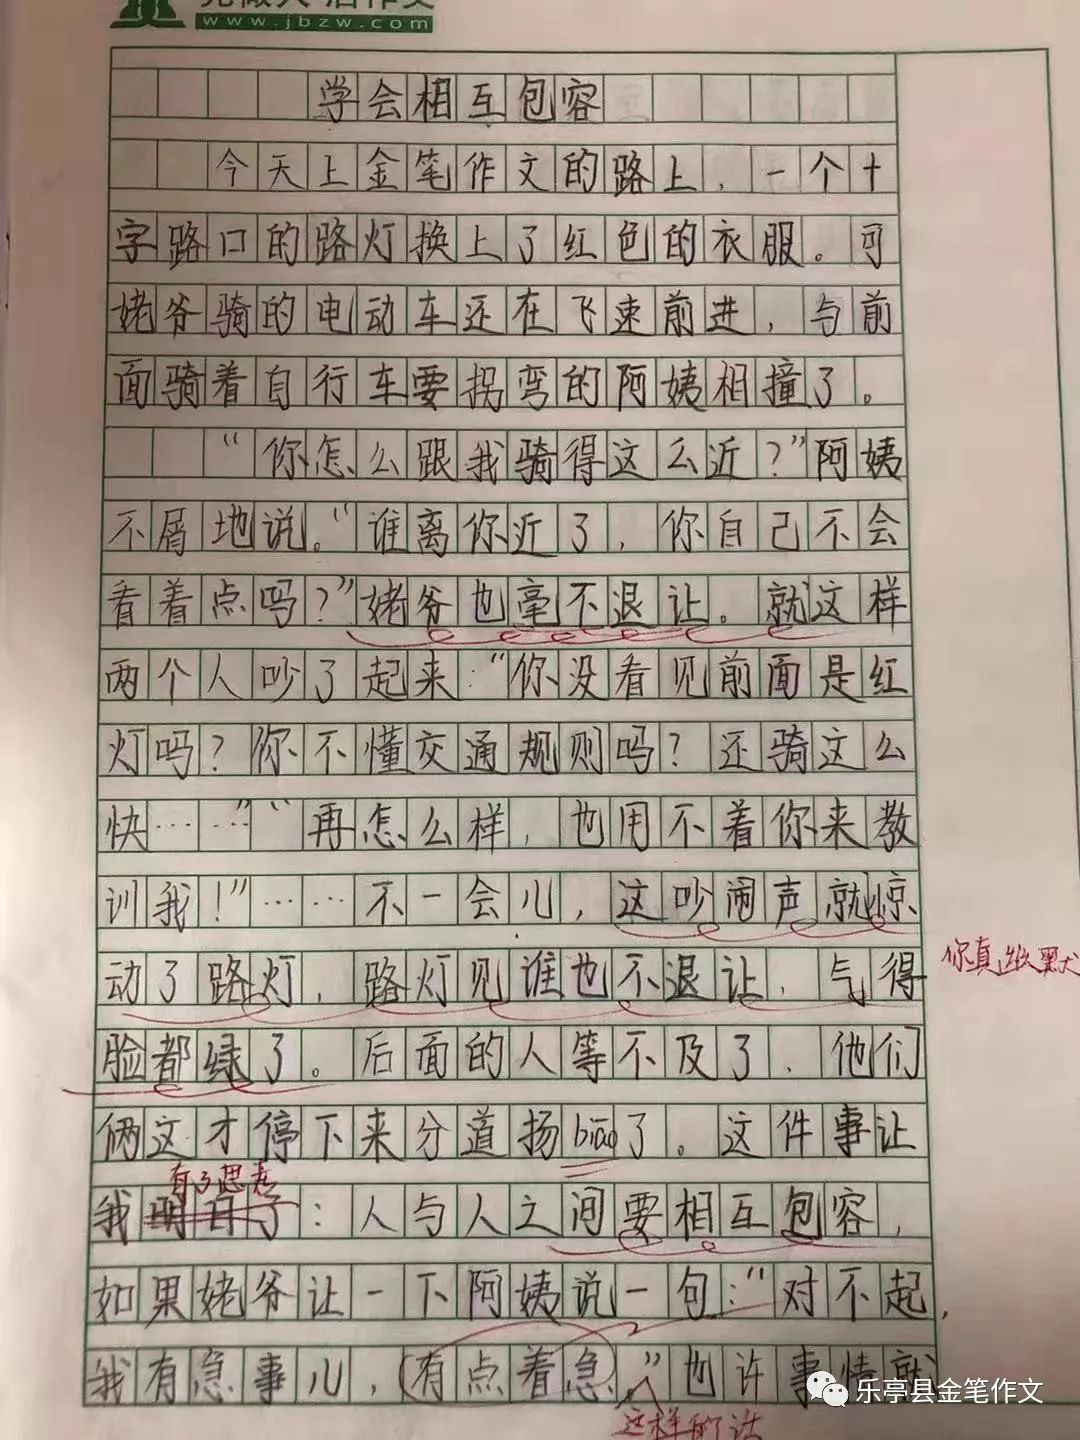 先做人 后作文
www.jbzw.com
学会相互包容
今天上金笔作文的路上，一个十
字路口的路灯换上了红色的衣服。可
姥爷骑的电动车还在飞速前进，与前
面骑着自行车要拐弯的阿姨相撞了。
“你怎么跟我骑得这么近？”阿姨
不屑地说。“谁离你近了，你自己不会
看着点吗？”姥爷也毫不退让。就这样
两个人吵了起来：“你没看见前面是红
灯吗？你不懂交通规则吗？还骑这么
快……”“再怎么样，也用不着你来教
训我！”……不一会儿，这吵闹声就惊
动了路灯，路灯见谁也不退让，气得
你真幽默
脸都绿了。后面的人等不及了，他们
俩这才停下来分道扬biāo了。这件事让
有了思考
我明白了：人与人之间要相互包容，
如果姥爷让一下阿姨说一句：“对不起，
我有急事儿，有点着急。”也许事情就
这样的话
乐亭县金笔作文